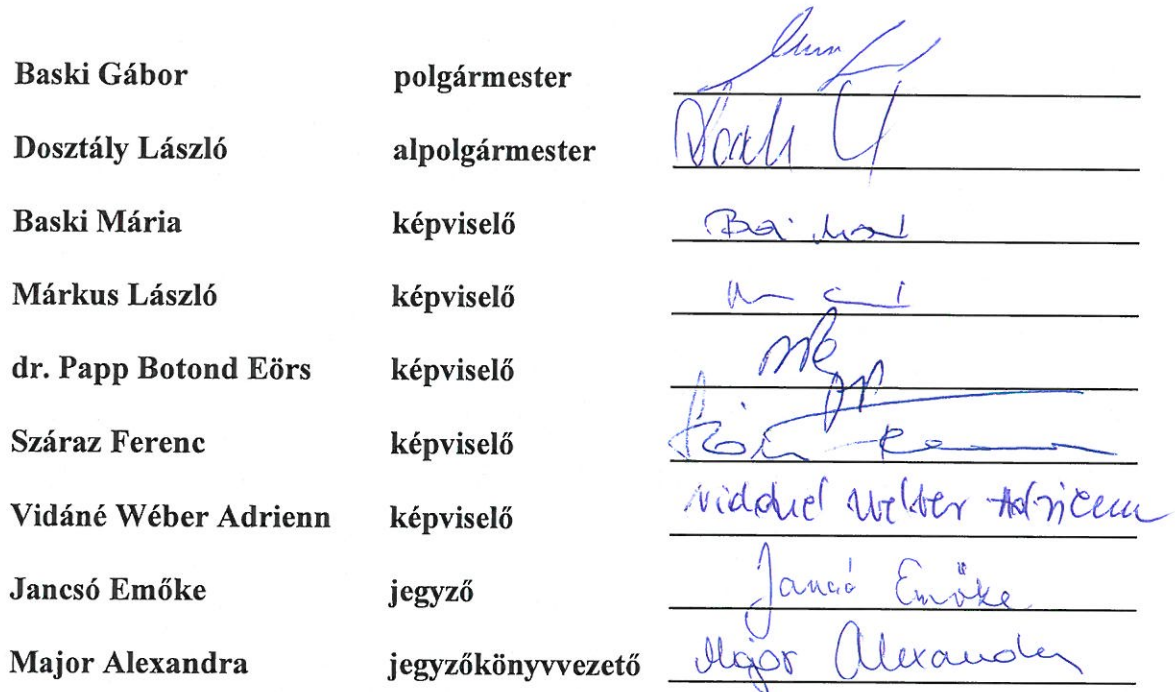 Baski Gábor polgármester
Dosztály László alpolgármester
Baski Mária képviselő
Márkus László képviselő
dr. Papp Botond Eörs képviselő
Száraz Ferenc képviselő
Vidáné Wéber Adrienn képviselő
Jancsó Emőke jegyző Jancsó Emőke
Major Alexandra jegyzőkönyvvezető Major Alexandra